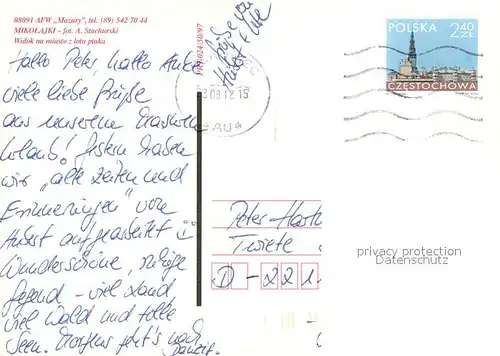 08091 AFW „Mazury", tel. (89) 542 70 44
MIKOŁAJKI – fot. A. Stachurski
Widok na miasto z lotu ptaka
Hallo Peter, hallo Anke
viele liebe Grüße
aus unserem
Urlaub! Gestern haben
wir „alte Zeiten und
Erinnerungen" von
Hubert aufgearbeitet
Wunderschöne, ruhige
Gegend – viel Land
viel Wald und tolle
Seen. Morgen geht's nach
Danzig.
Grüße von
Hubert + Ute
POLSKA
2,40 ZŁ
CZĘSTOCHOWA
12 15
AU*
Peter
Twiete
D-221
privacy protection
Datenschutz